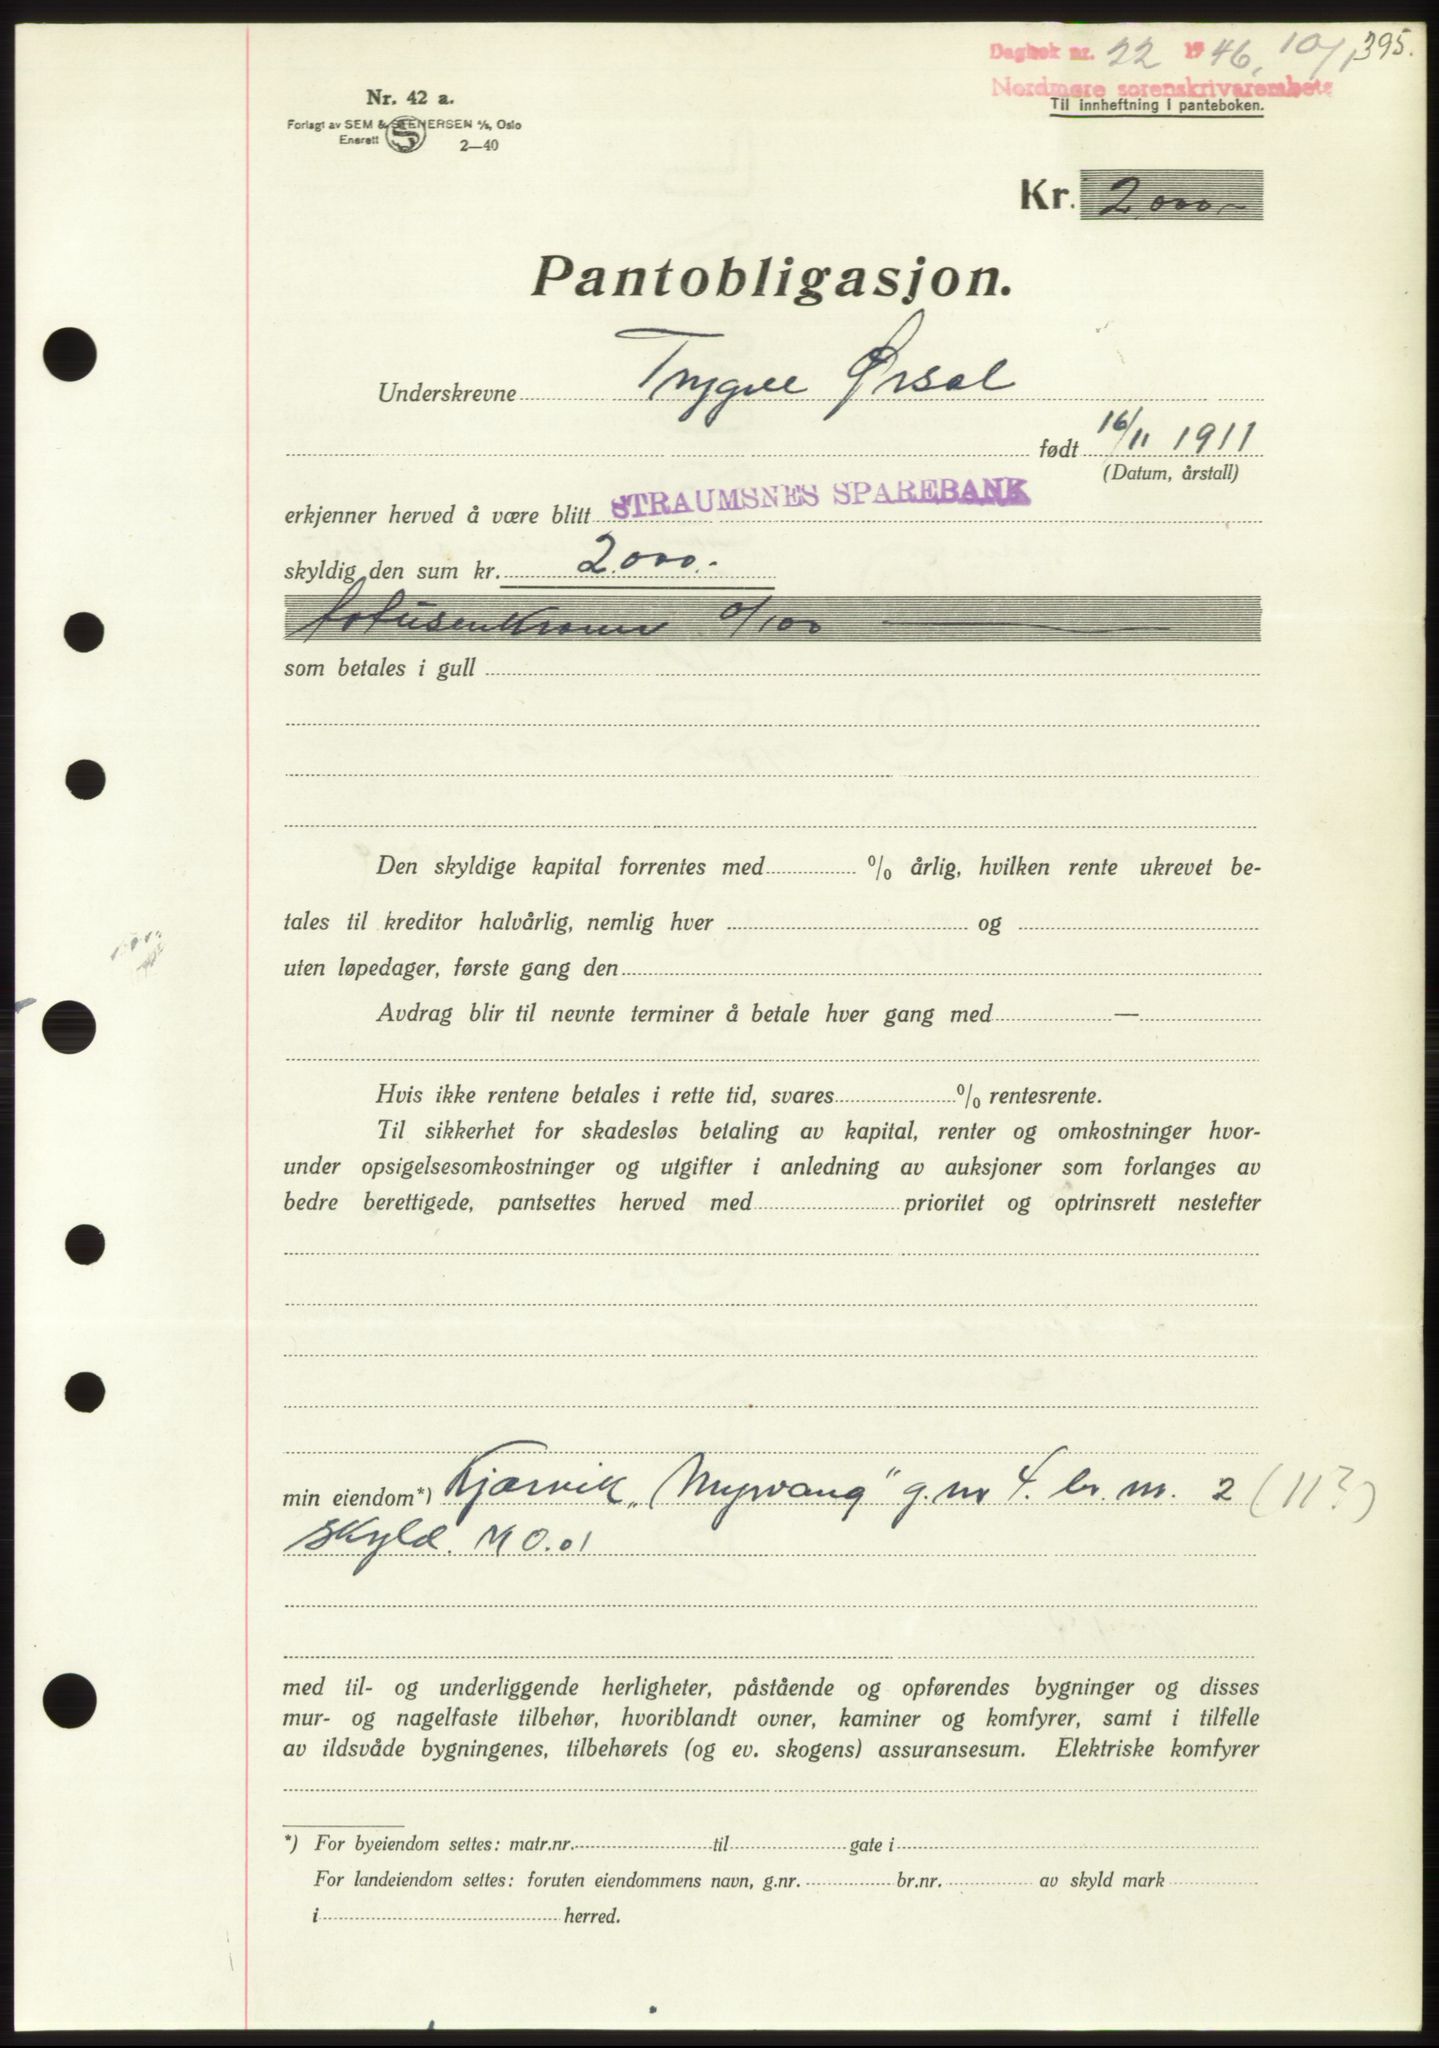 Dagbok nr. 22 1946, 10/1 395.
Nordmøre sorenskrivarembete
Til innheftning i panteboken.
Nr. 42 a.
Forlagt av SEM & STENERSEN A/S, Oslo
Enerett
2—40
Kr. 2.000.-
Pantobligasjon.
Underskrevne Trygve Ørsal
født 16/11 1911
(Datum, årstall)
erkjenner herved å være blitt STRAUMSNES SPAREBANK
skyldig den sum kr. 2.000.-
totusenkroner 0/100
som betales i gull
Den skyldige kapital forrentes med % årlig, hvilken rente ukrevet be-
tales til kreditor halvårlig, nemlig hver og
uten løpedager, første gang den
Avdrag blir til nevnte terminer å betale hver gang med —
Hvis ikke rentene betales i rette tid, svares % rentesrente.
Til sikkerhet for skadesløs betaling av kapital, renter og omkostninger hvor-
under opsigelsesomkostninger og utgifter i anledning av auksjoner som forlanges av
bedre berettigede, pantsettes herved med prioritet og optrinsrett nestefter
min eiendom*) Kjærvik „Myrvang“ g.nr 4. br. nr. 2 (11?)
skyld. M 0.01
med til- og underliggende herligheter, påstående og opførendes bygninger og disses
mur- og nagelfaste tilbehør, hvoriblandt ovner, kaminer og komfyrer, samt i tilfelle
av ildsvåde bygningenes, tilbehørets (og ev. skogens) assuransesum. Elektriske komfyrer
*) For byeiendom settes: matr.nr. til gate i
For landeiendom settes: foruten eiendommens navn, g.nr. br.nr. av skyld mark
i herred.